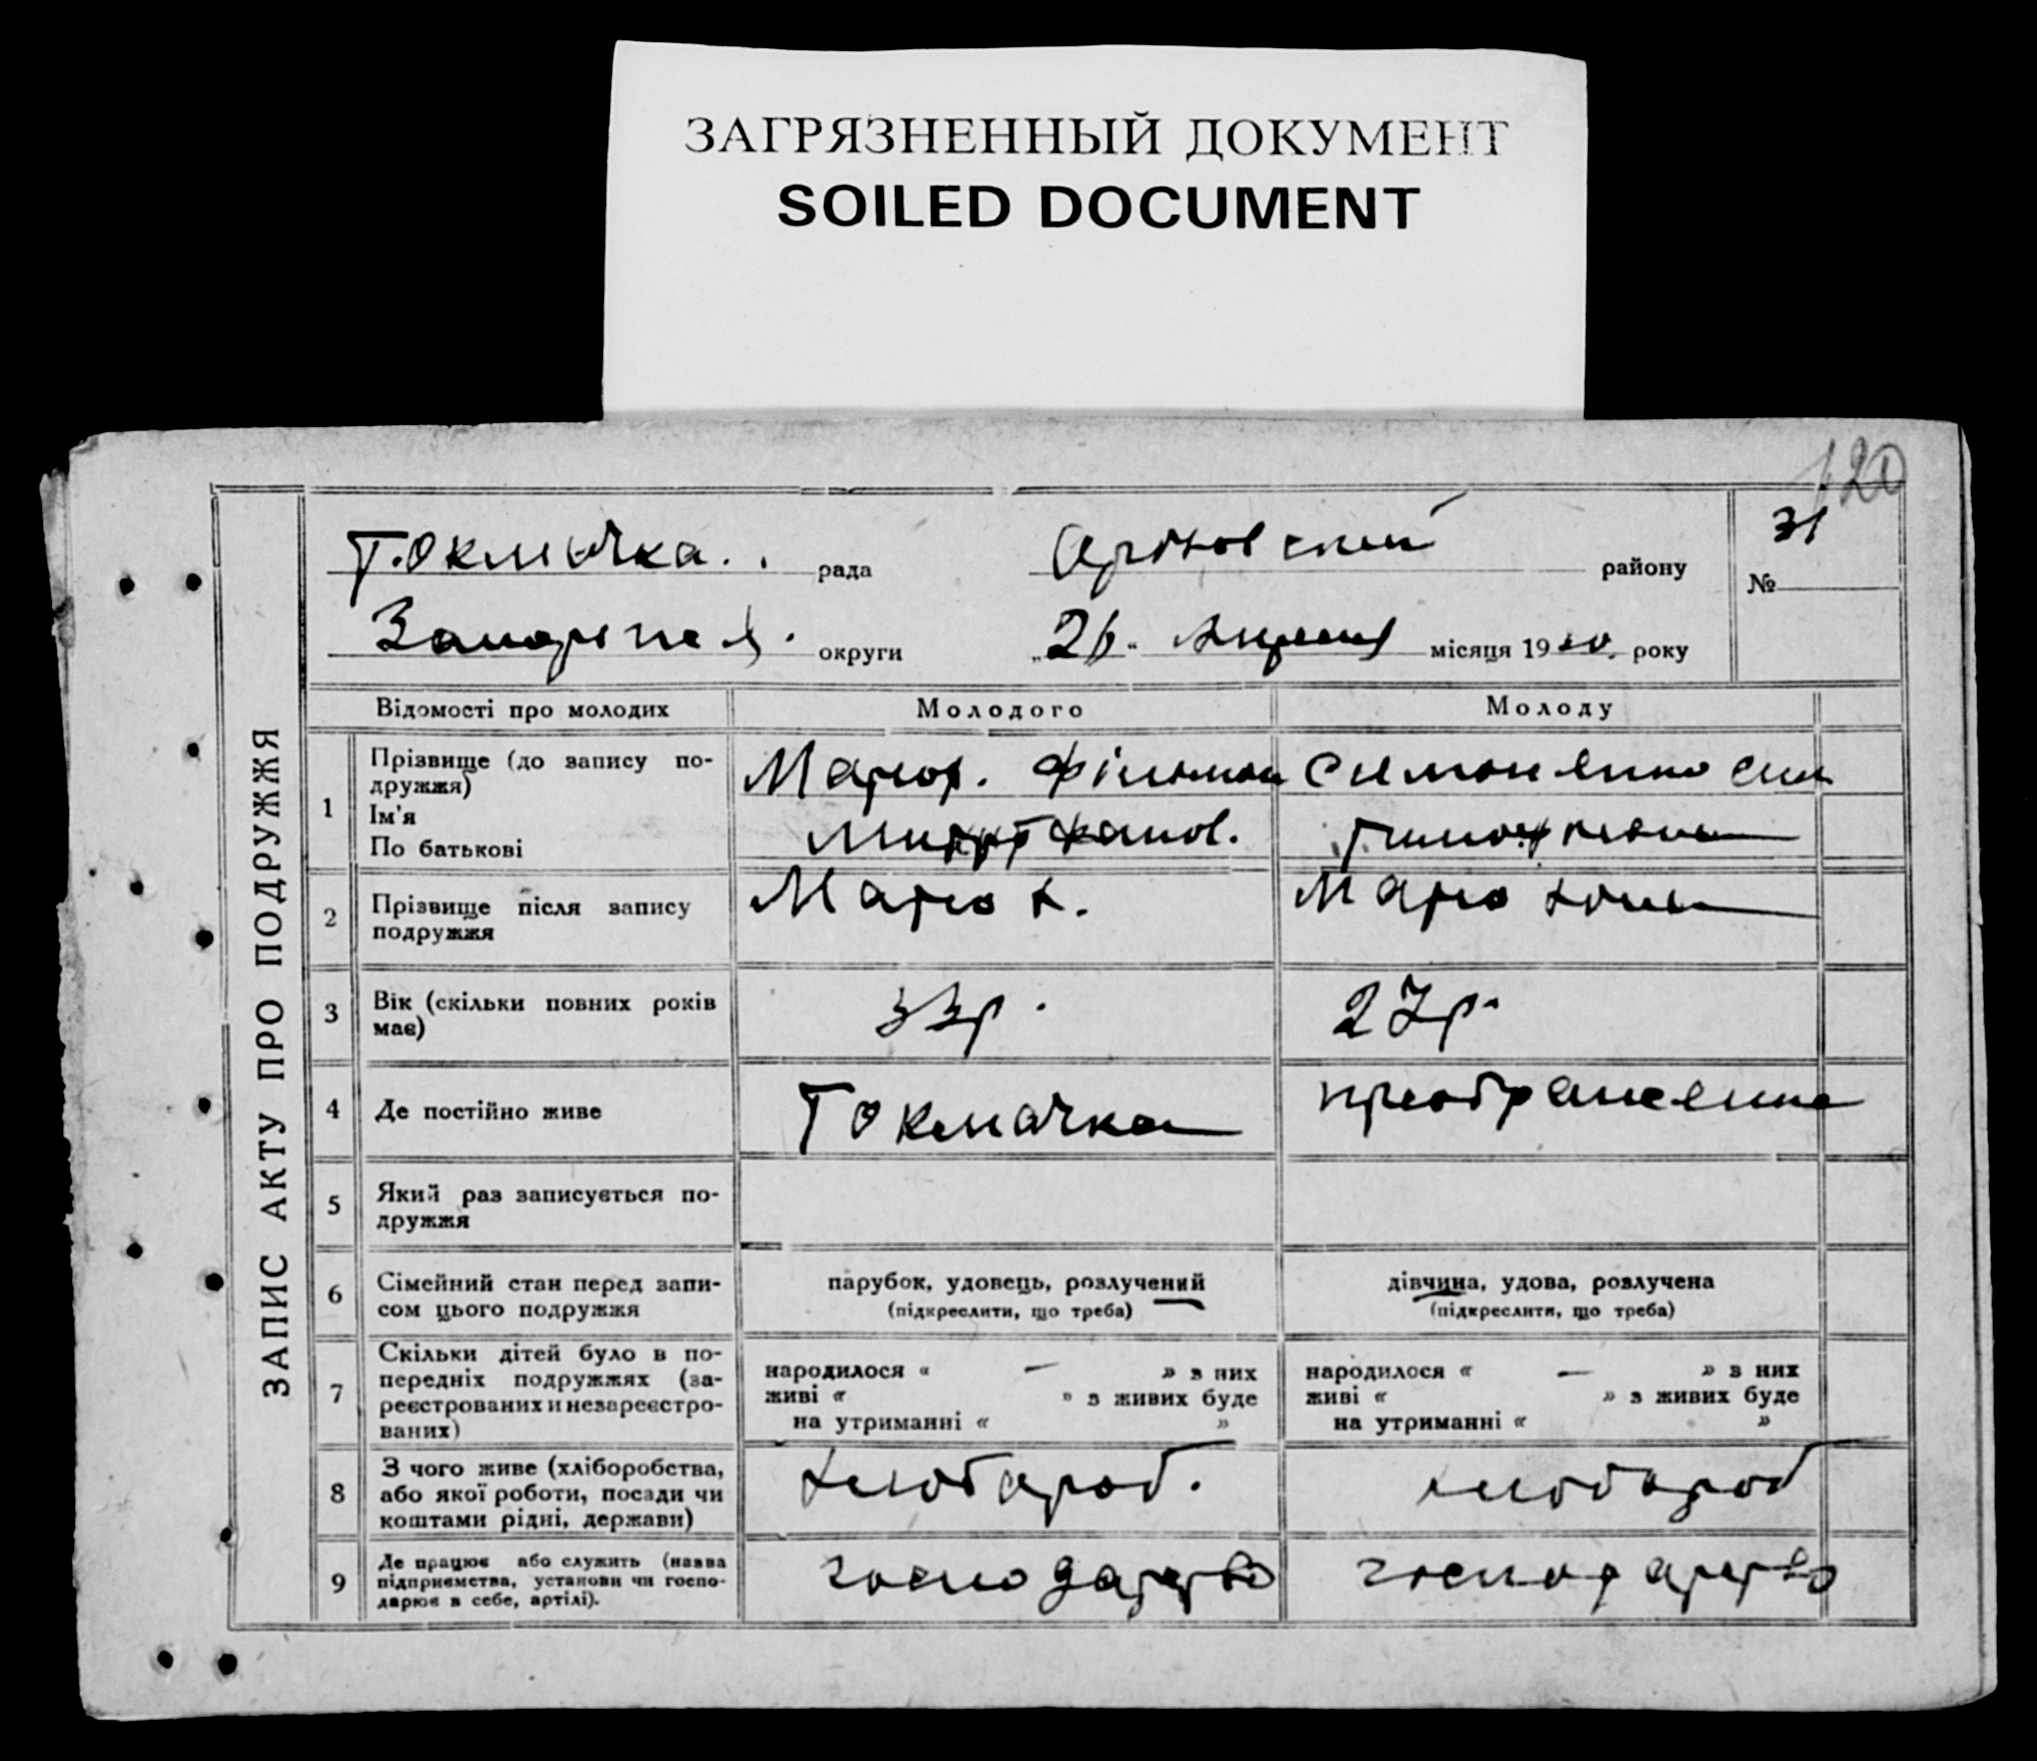 ЗАГРЯЗНЕННЫЙ ДОКУМЕНТ
SOILED DOCUMENT
120
ЗАПИС АКТУ ПРО ПОДРУЖЖЯ
Токмачка. рада
району
31
№
округи
„26“ Апреля місяця 19 року
Відомості про молодих
Молодого
Молоду
1
Прізвище (до запису по-
дружжя)
Ім'я
По батькові
2
Прізвище після запису
подружжя
3
Вік (скільки повних років
має)
33р.
27р.
4
Де постійно живе
Токмачка
5
Який раз записується по-
дружжя
6
Сімейний стан перед запи-
сом цього подружжя
парубок, удовець, розлучений
(підкреслити, що треба)
дівчина, удова, розлучена
(підкреслити, що треба)
7
Скільки дітей було в по-
передніх подружжях (за-
реєстрованих и незареєстро-
ваних)
народилося « — » з них
живі « » з живих буде
на утриманні « »
народилося « — » з них
живі « » з живих буде
на утриманні « »
8
З чого живе (хліборобства,
або якої роботи, посади чи
коштами рідні, держави)
9
Де працює або служить (назва
підприємства, установи чи госпо-
дарює в себе, артілі).
господарство
господарство